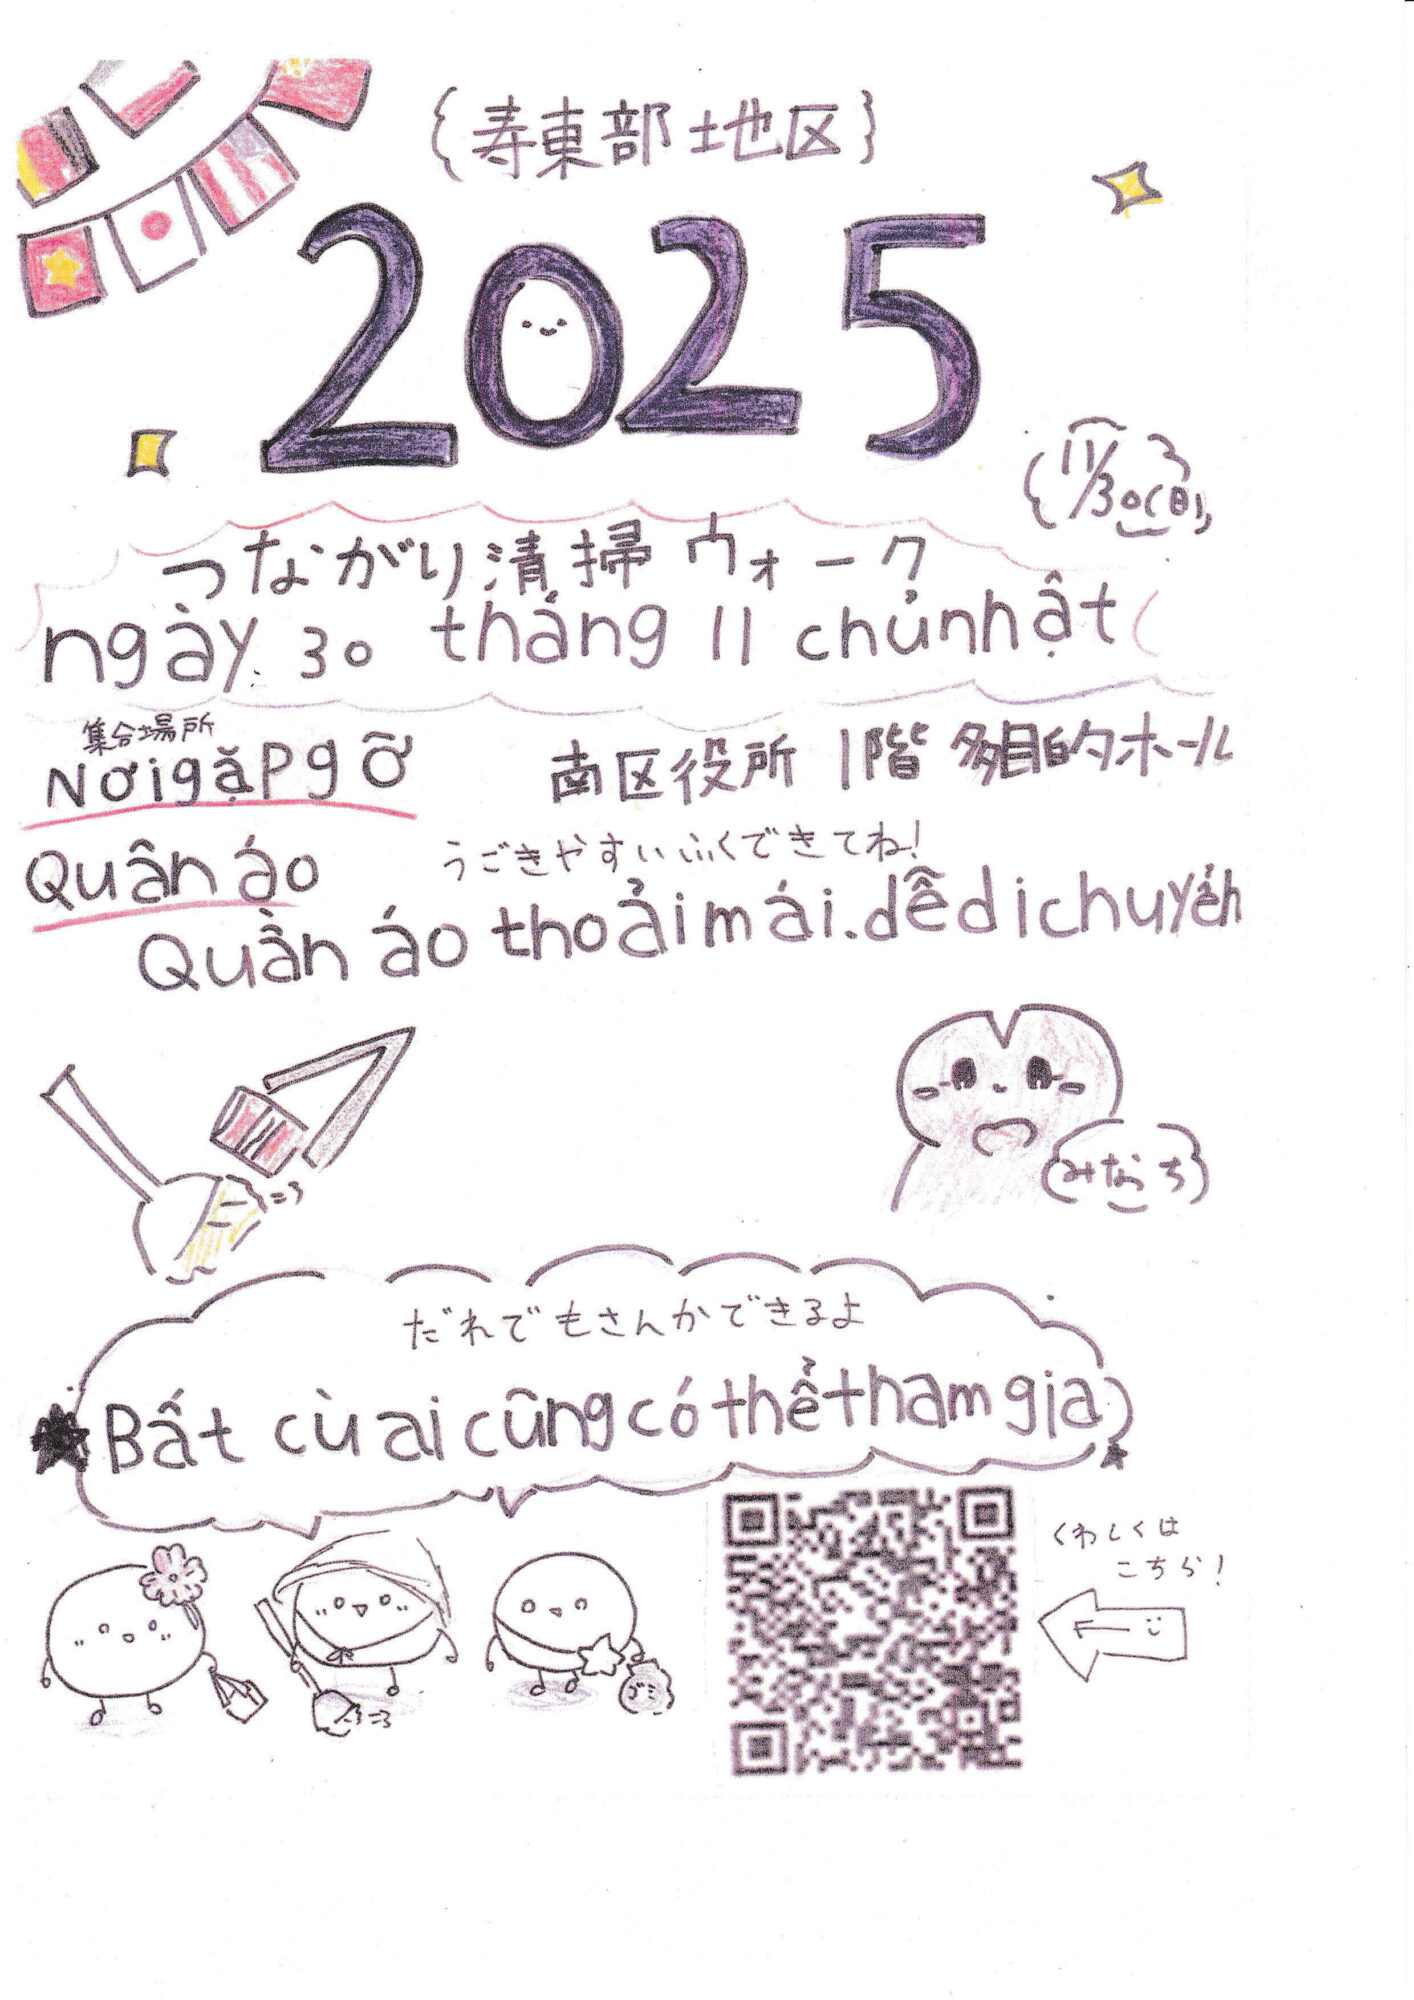 {寿東部地区}
2025
{11/30(日)}
つながり清掃ウォーク
ngày 30 tháng 11 chủ nhật
集合場所
Nơi gặp gỡ 南区役所 1階 多目的ホール
Quần áo うごきやすいふくできてね!
Quần áo thoải mái. dễ di chuyển
=3
{みなっち}
だれでもさんかできるよ
Bất cù ai cũng có thể tham gia
くわしくは
こちら!
ゴミ
=3